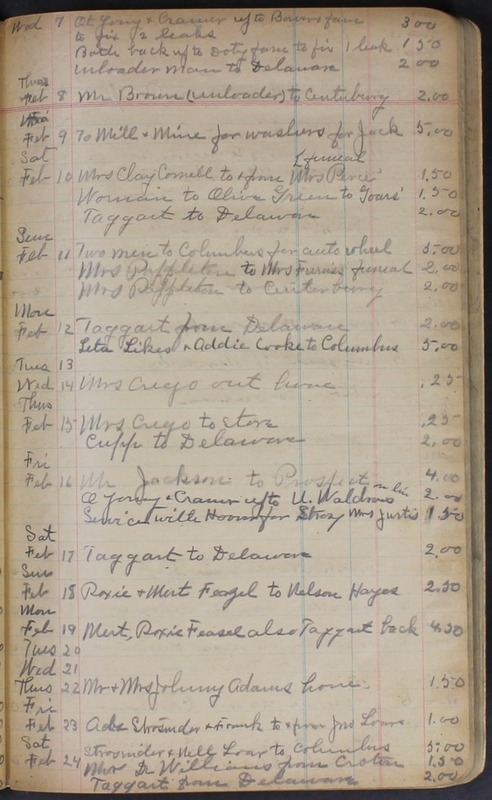 Wed 7 At Long & Cramer up to Bowers farm 3 00
to fix 2 leaks
Both back up to Doty farm to fix 1 leak 1 50
Unloader man to Delaware 2 00
Thurs
Feb 8 Mr Brown (unloader) to Centerburg 2.00
Fri
Feb 9 To Mill & Mine for washers for Jack 5.00
Sat
funeral
Feb 10 Mrs Clay Cornell to & from Mrs 1.50
Woman to Olive Green to 1.50
Taggart to Delaware 2.00
Sun
Feb 11 Two men to Columbus for auto wheel 5.00
Mrs Poppleton to Mrs funeral 2.00
Mrs Poppleton to Centerburg 2.00
Mon
Feb 12 Taggart from Delaware 2.00
Leta Likes & Addie Cooke to Columbus 5.00
Tues 13
Wed 14 Mrs Crego out home .25
Thus
Feb 15 Mrs Crego to store .25
Cupp to Delaware 2.00
Fri
Feb 16 Mr Jackson to Prospect 4.00
& Cramer up to U. Waldrons on line 2.00
Service with for Stray Mrs 1.50
Sat
Feb 17 Taggart to Delaware 2.00
Sun
Feb 18 Roxie & Mert Feazel to Nelson Hayes 2.50
Mon
Feb 19 Mert, Roxie Feasel also Taggart back 4.50
Tues 20
Wed 21
Thus 22 Mr & Mrs Johnny Adams home 1.50
Fri
Feb 23 Ada Strosnider & Frank to & from Jno Loars 1.00
Sat
Strosnider & Nell Loar to Columbus 5.00
Feb 24 Mrs Dr Williams from Croton 1.50
Taggart from Delaware 2.00